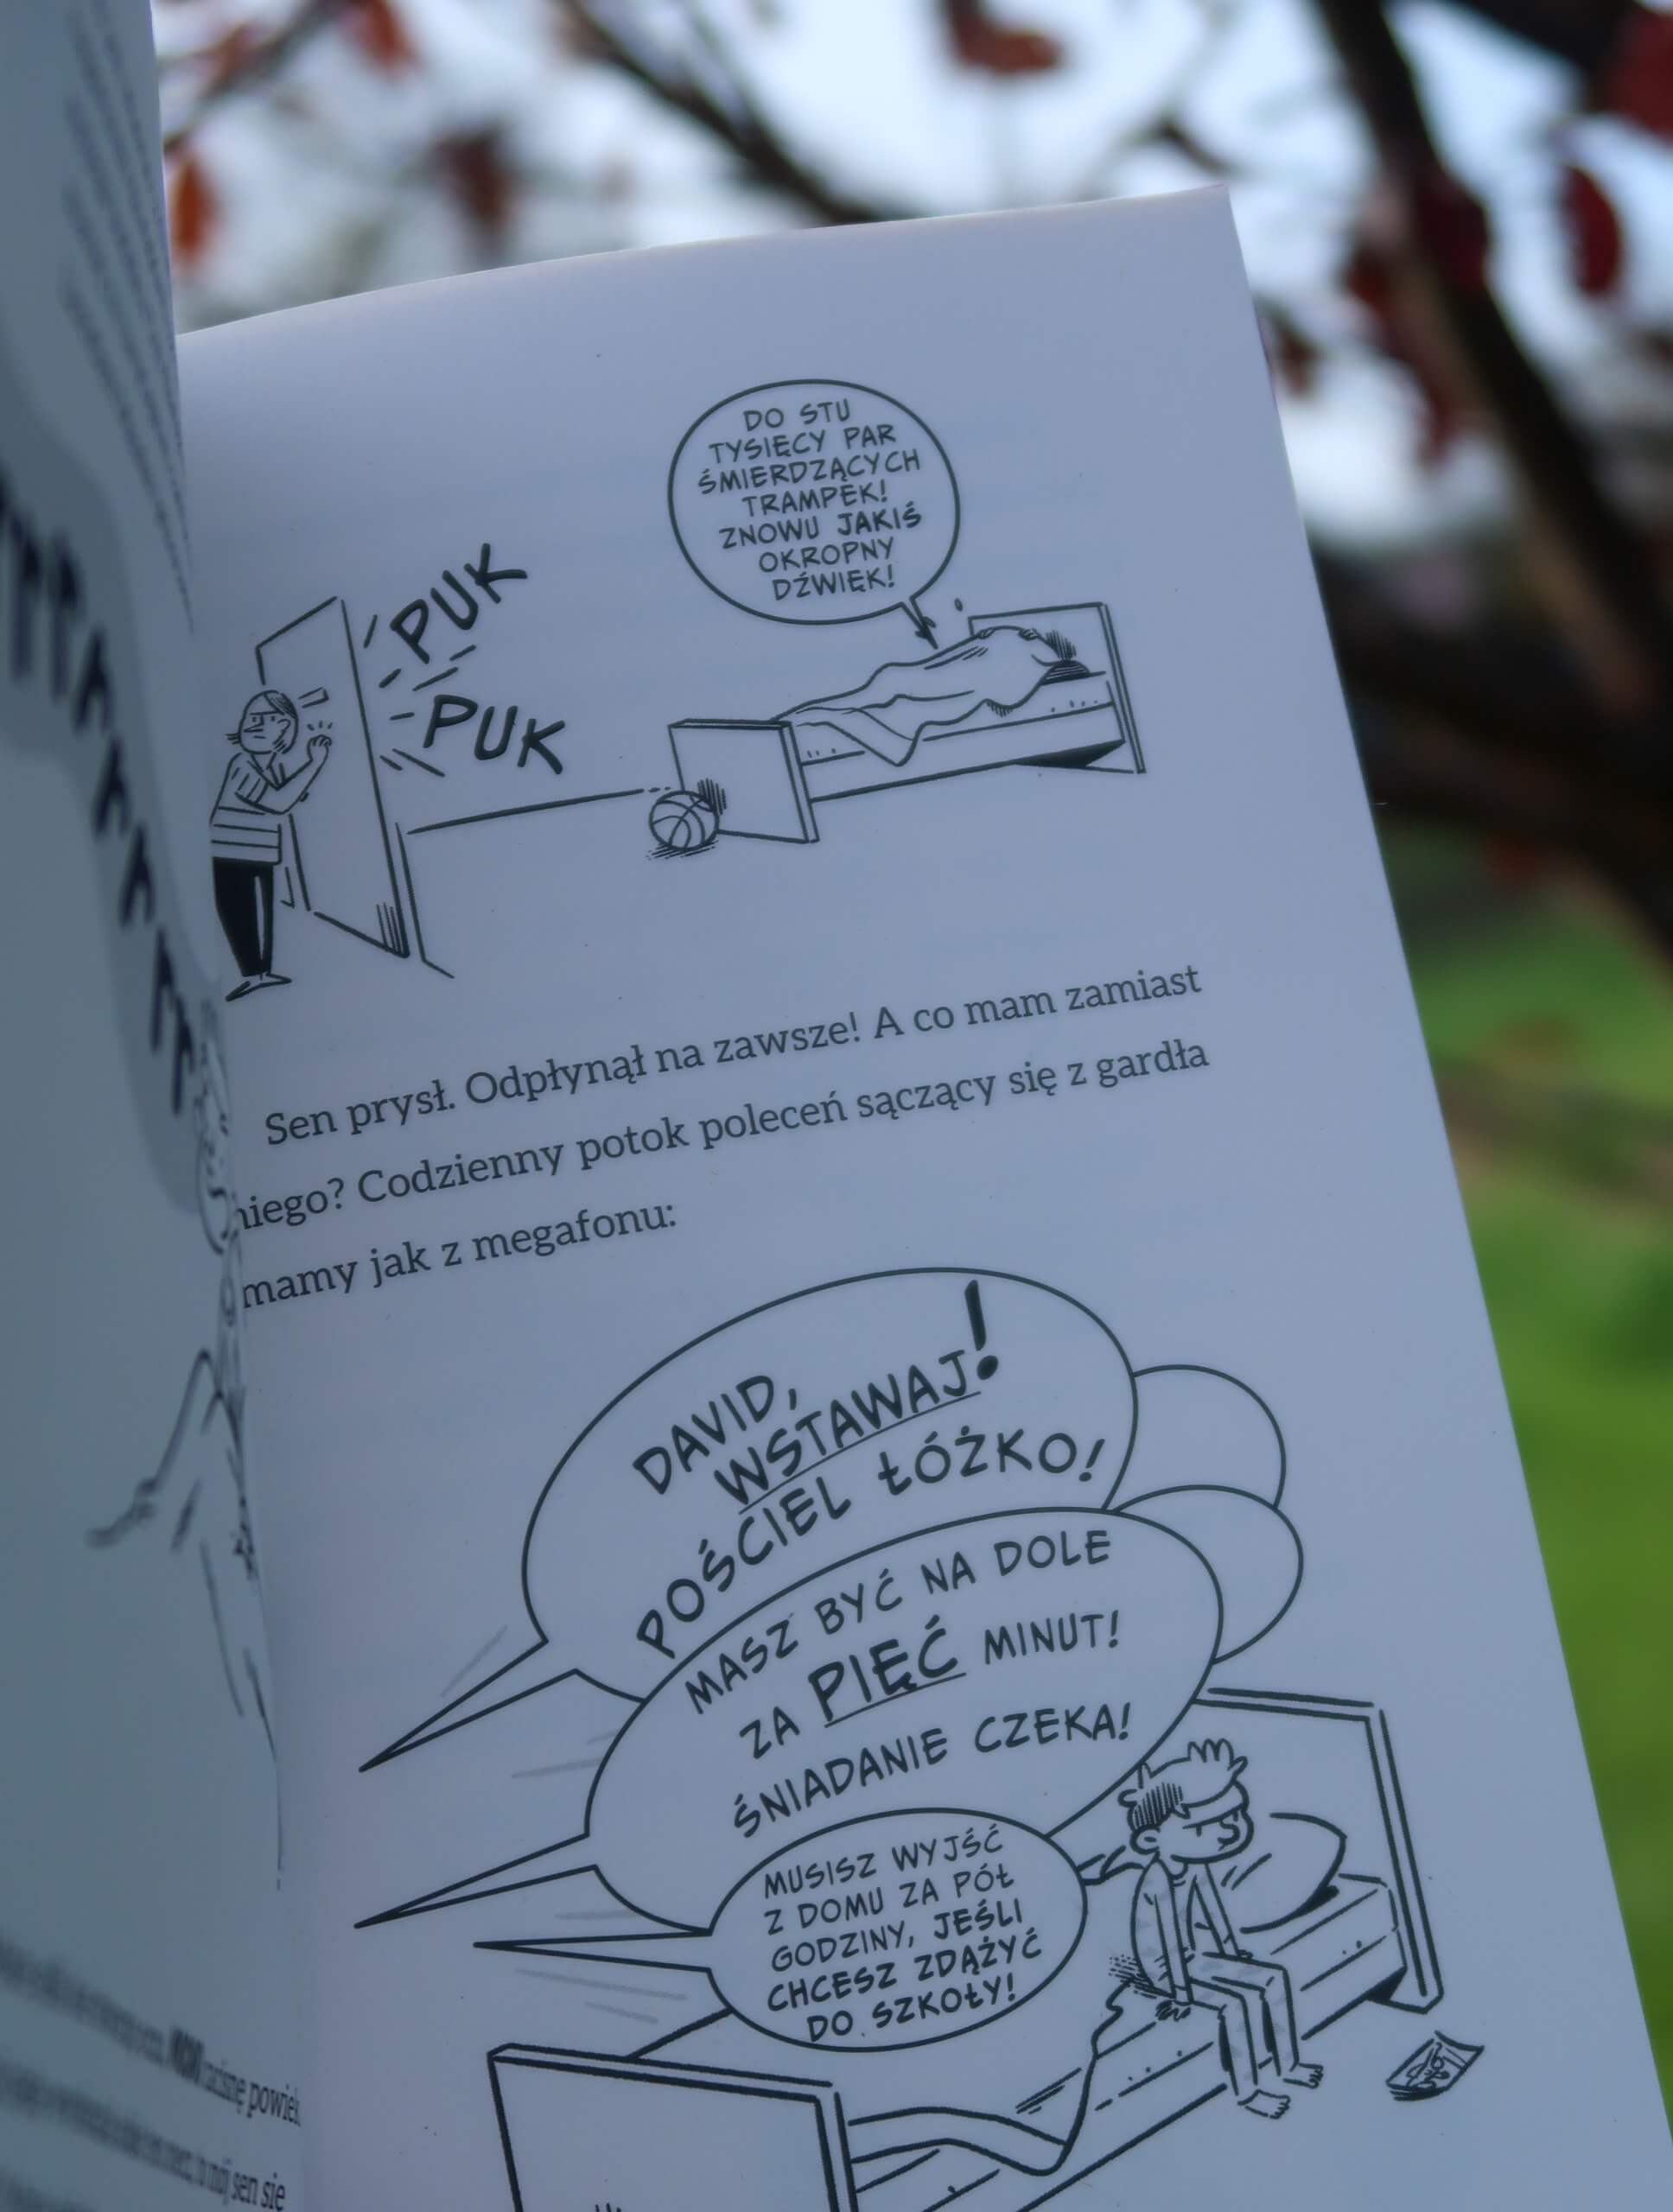 DO STU
TYSIĘCY PAR
ŚMIERDZĄCYCH
TRAMPEK!
ZNOWU JAKIŚ
OKROPNY
DŹWIĘK!
PUK
PUK
Sen prysł. Odpłynął na zawsze! A co mam zamiast
niego? Codzienny potok poleceń sączący się z gardła
mamy jak z megafonu:
DAVID,
WSTAWAJ!
POŚCIEL ŁÓŻKO!
MASZ BYĆ NA DOLE
ZA PIĘĆ MINUT!
ŚNIADANIE CZEKA!
MUSISZ WYJŚĆ
Z DOMU ZA PÓŁ
GODZINY, JEŚLI
CHCESZ ZDĄŻYĆ
DO SZKOŁY!
mój sen się